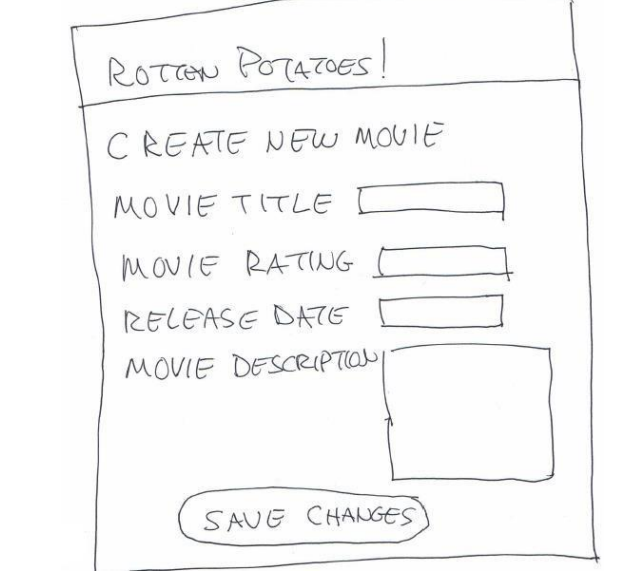 ROTTEN POTATOES!
CREATE NEW MOVIE
MOVIE TITLE
MOVIE RATING
RELEASE DATE
MOVIE DESCRIPTION
SAVE CHANGES